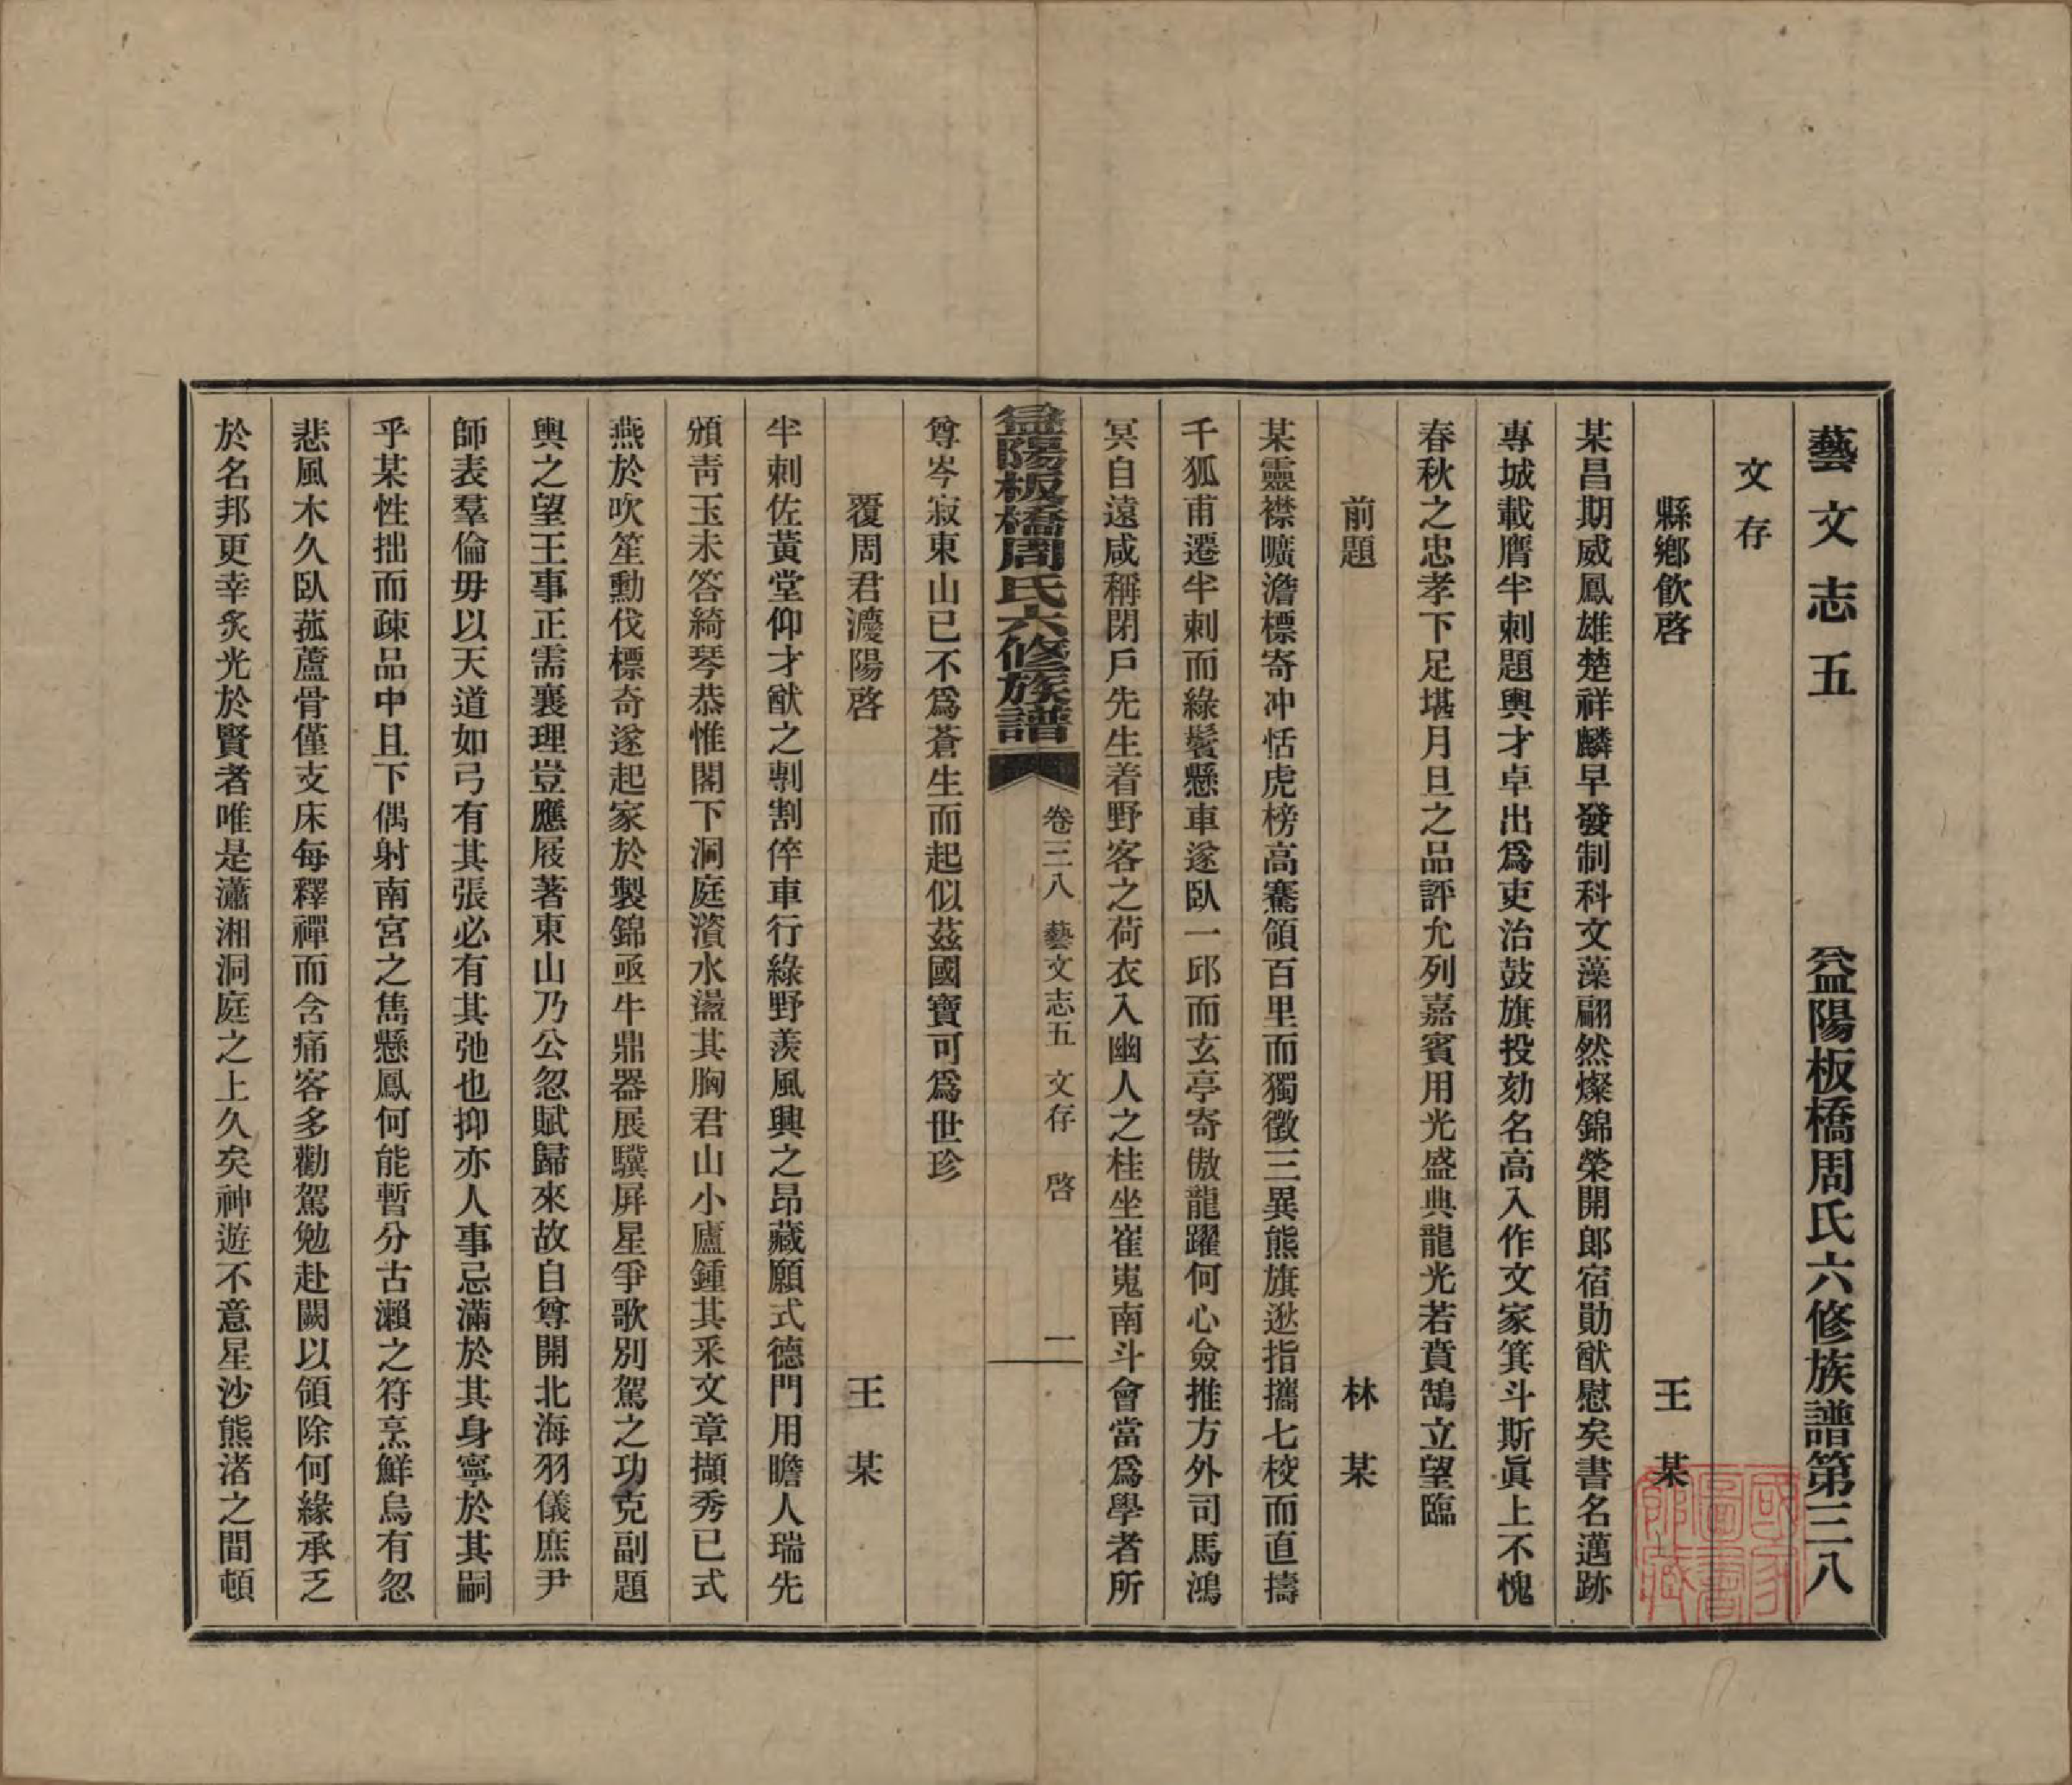 藝文志五　益陽板橋周氏六修族譜第三八
文存
縣鄉飲啓　王某
某昌期威鳳雄楚祥麟早發制科文藻翩然燦錦榮開郎宿勛猷慰矣書名邁跡
專城載膺半刺題輿才卓出爲吏治鼓旗投劾名高入作文家箕斗斯眞上不愧
春秋之忠孝下足堪月旦之品評允列嘉賓用光盛典龍光若賁鵠立望臨
前題　林某
某靈襟曠澹標寄冲恬虎榜高騫領百里而獨徵三異熊旗逖指攜七校而直擣
千狐甫遷半刺而綠鬢懸車遂臥一邱而玄亭寄傲龍躍何心僉推方外司馬鴻
冥自遠咸稱閉戶先生着野客之荷衣入幽人之桂坐崔嵬南斗會當爲學者所
益陽板橋周氏六修族譜　卷三八　藝文志五　文存　啓　一
尊岑寂東山已不爲蒼生而起似茲國寶可爲世珍
覆周君瀀陽啓　王某
半刺佐黃堂仰才猷之剸割倅車行綠野羨風興之昂藏願式德門用瞻人瑞先
頒靑玉未答綺琴恭惟閣下洞庭濱水盪其胸君山小廬鍾其釆文章擷秀已式
燕於吹笙勳伐標奇遂起家於製錦亟牛鼎器展驥屏星爭歌別駕之功克副題
輿之望王事正需襄理豈應屐著東山乃公忽賦歸來故自尊開北海羽儀庶尹
師表羣倫毋以天道如弓有其張必有其弛也抑亦人事忌滿於其身寧於其嗣
乎某性拙而疎品中且下偶射南宮之雋懸鳳何能暫分古瀨之符烹鮮烏有忽
悲風木久臥菰蘆骨僅支床每釋禫而含痛客多勸駕勉赴闕以領除何緣承乏
於名邦更幸炙光於賢者唯是瀟湘洞庭之上久矣神遊不意星沙熊渚之間頓
國家圖書館藏